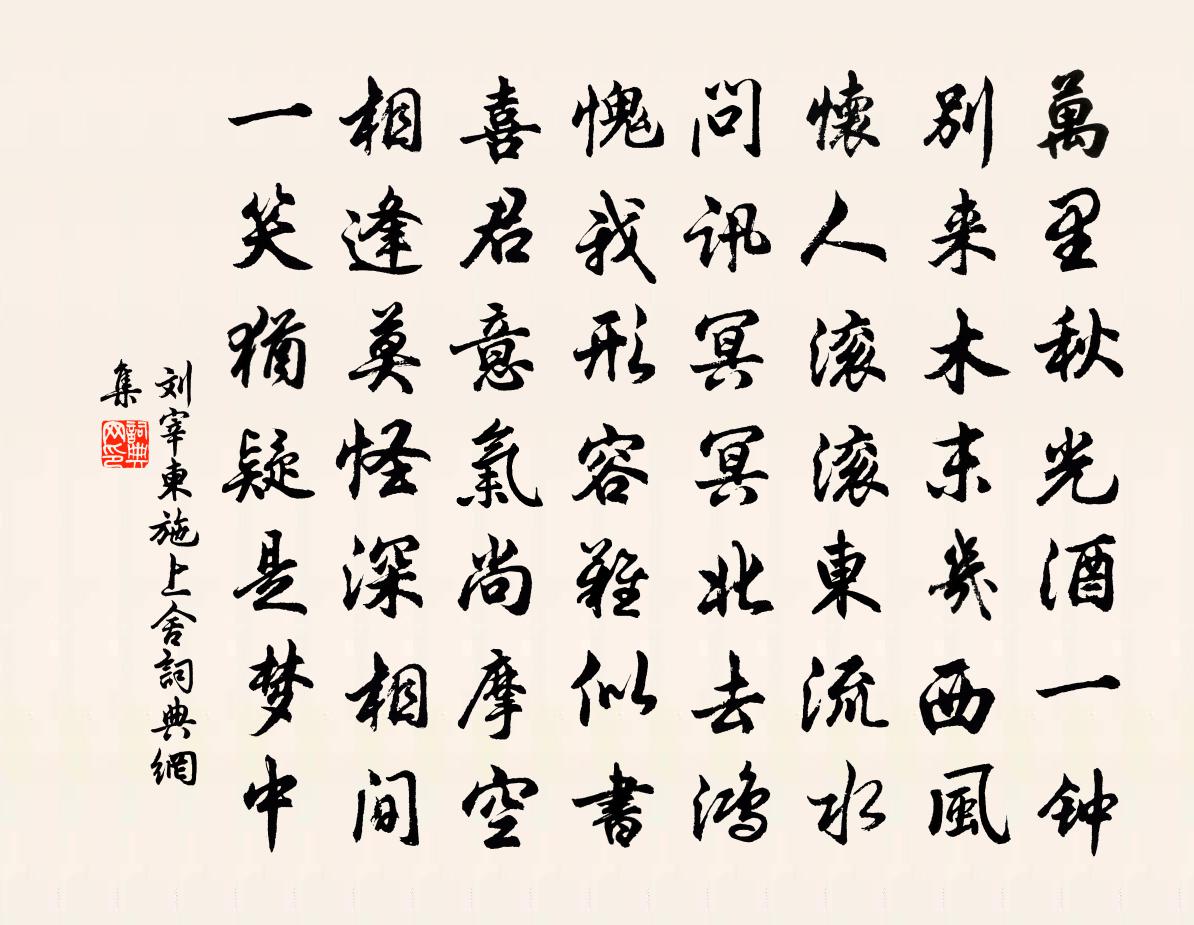 萬里秋光酒一钟
別来木末幾西風
懷人滚滚東流水
問訊冥冥北去鸿
愧我形容難似書
喜君意氣尚摩空
相逢莫怪深相間
一笑猶疑是梦中
刘宰東施上舍詞典網
集
詞典网印